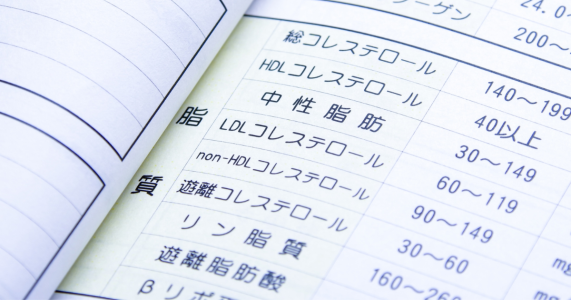 ーゲン 24.0
200〜
総コレステロール 140〜199
HDLコレステロール 40以上
中性脂肪 30〜149
LDLコレステロール 60〜119
non-HDLコレステロール 90〜149
遊離コレステロール 30〜60
リン脂質 160〜26
遊離脂肪酸
βリポ
脂質
mg